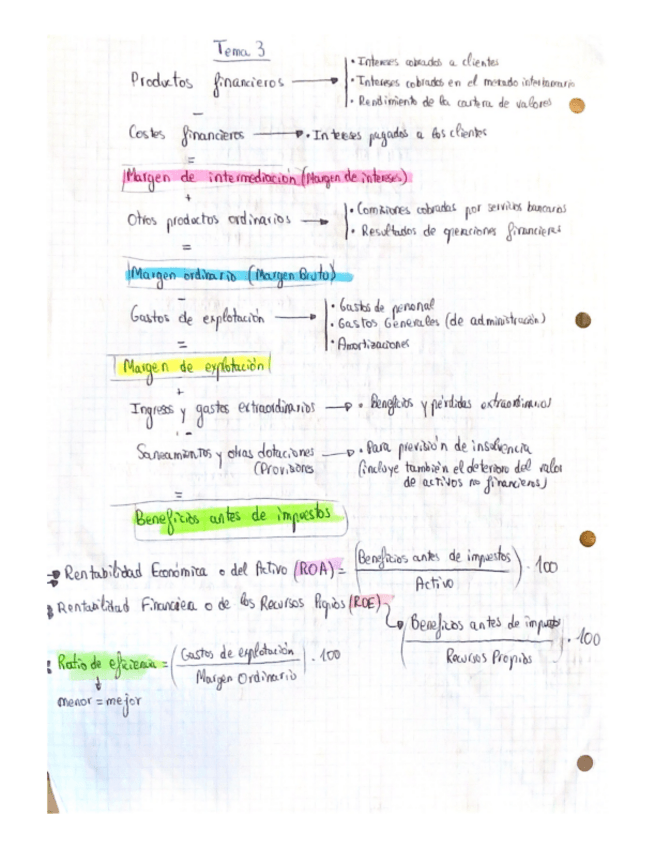 Tema 3
Productos financieros → • Intereses cobrados a clientes
• Intereses cobrados en el mercado interbancario
• Rendimiento de la cartera de valores
-
Costes financieros → • Intereses pagados a los clientes
=
Margen de intermediación (Margen de intereses)
+
Otros productos ordinarios → • Comisiones cobradas por servicios bancarios
• Resultados de operaciones financieras
=
Margen ordinario (Margen Bruto)
-
Gastos de explotación → • Gastos de personal
• Gastos Generales (de administración)
• Amortizaciones
=
Margen de explotación
+
Ingresos y gastos extraordinarios → • Beneficios y pérdidas extraordinarios
+ -
Saneamientos y otras dotaciones → • Para previsión de insolvencia
(Provisiones (incluye también el deterioro del valor
de activos no financieros)
=
Beneficios antes de impuestos
→ Rentabilidad Económica o del Activo (ROA) = (Beneficios antes de impuestos / Activo) · 100
Rentabilidad Financiera o de los Recursos Propios (ROE)
→ (Beneficios antes de impuestos / Recursos Propios) · 100
Ratio de eficiencia = (Gastos de explotación / Margen Ordinario) · 100
↓
menor = mejor